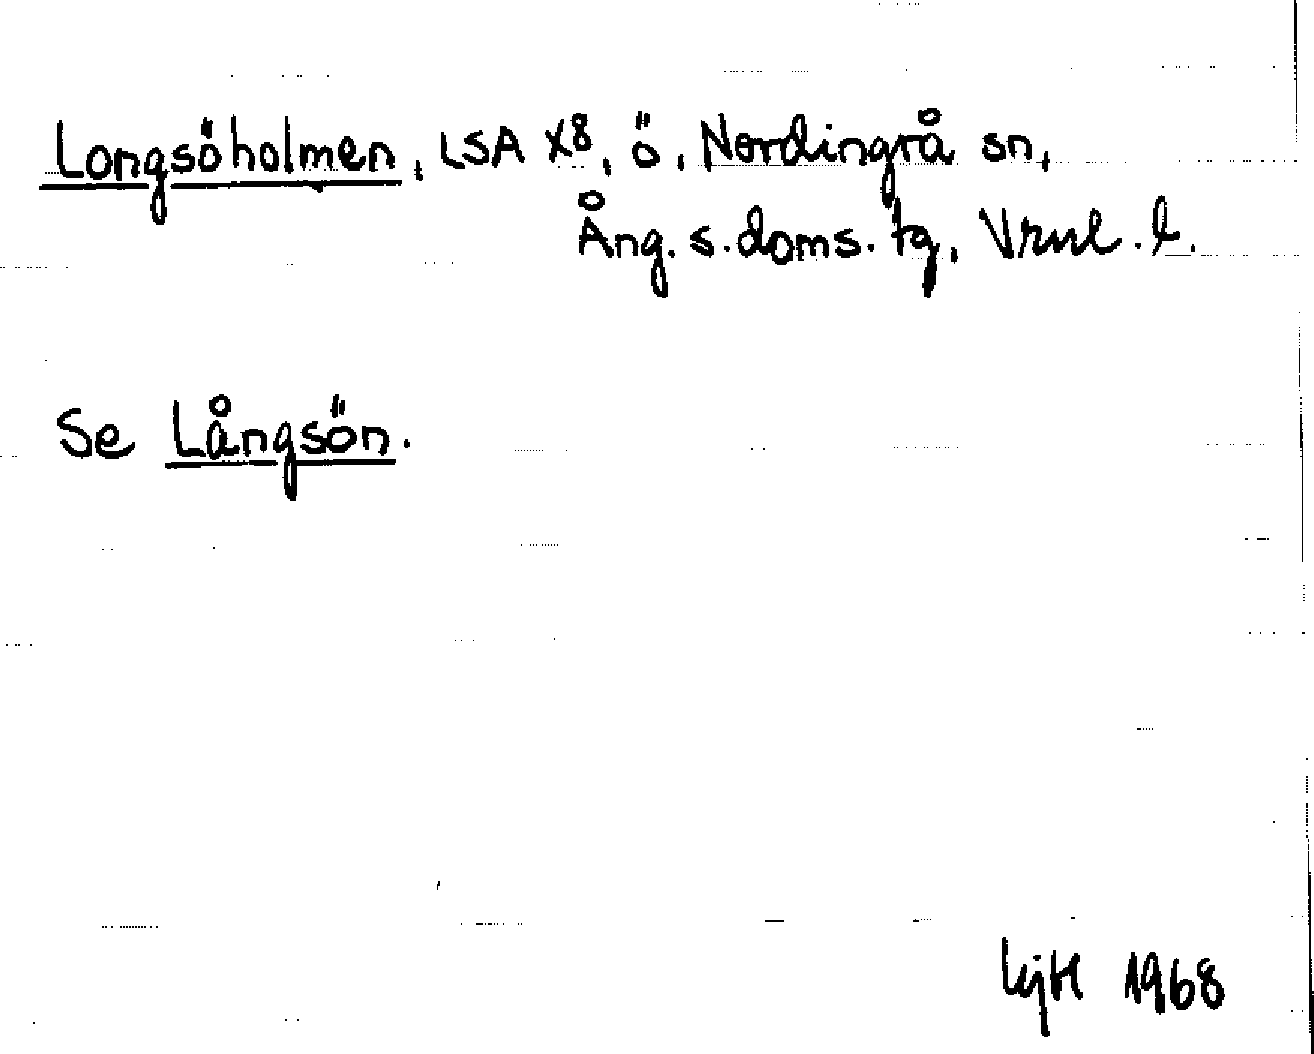 Longsöholmen, LSA X8, ö, Nordingrå sn,
Ång. s. doms. tg, Vrnl. l.
Se Långsön.
1968